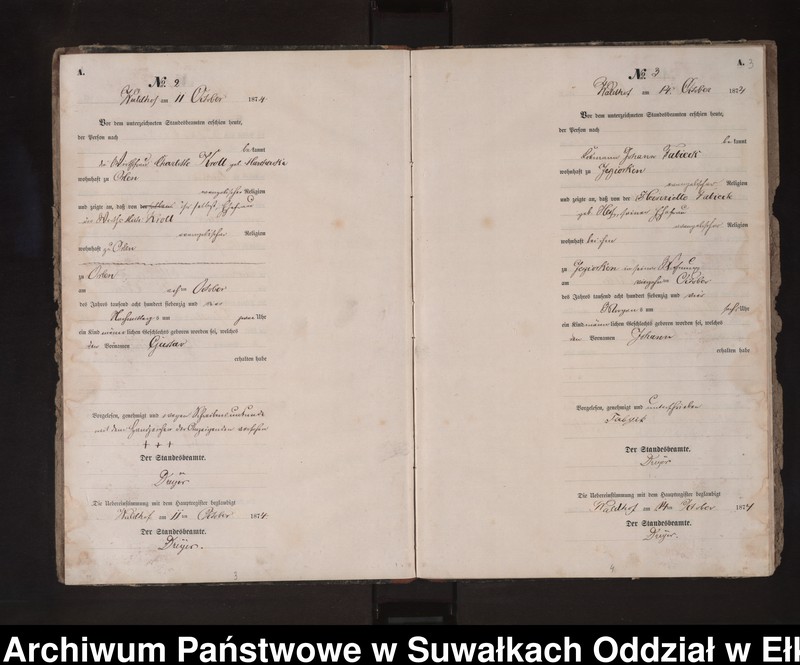 A.
№ 2
Waldhof am 11 October 1874.
Vor dem unterzeichneten Standesbeamten erschien heute,
der Person nach
bekannt
die Charlotte Kroll geb.
wohnhaft zu Orlen
evangelischer Religion
und zeigte an, daß von ihr selbst Ehefrau
des Kroll
evangelischer Religion
wohnhaft zu Orlen
zu Orlen
am October
des Jahres tausend acht hundert siebenzig und vier
Nachmittags um zwei Uhr
ein Kind männlichen Geschlechts geboren worden sei, welches
den Vornamen Gustav
erhalten habe
Vorgelesen, genehmigt und wegen Schreibensunkunde
mit dem Handzeichen der Anzeigenden versehen
+ + +
Der Standesbeamte.
Dreyer
Die Uebereinstimmung mit dem Hauptregister beglaubigt
Waldhof am 11ten October 1874.
Der Standesbeamte.
Dreyer.
A. 3
№ 3
Waldhof am 14. October 1874
Vor dem unterzeichneten Standesbeamten erschien heute,
der Person nach
bekannt
Johann
wohnhaft zu Jegiorken
evangelischer Religion
und zeigte an, daß von der Henriette
geb. Ehefrau
evangelischer Religion
wohnhaft bei ihm
zu Jegiorken in seiner Wohnung
am October
des Jahres tausend acht hundert siebenzig und vier
um Uhr
ein Kind männlichen Geschlechts geboren worden sei, welches
den Vornamen Johann
erhalten habe
Vorgelesen, genehmigt und unterschrieben
Der Standesbeamte.
Dreyer
Die Uebereinstimmung mit dem Hauptregister beglaubigt
Waldhof am 14ten October 1874
Der Standesbeamte.
Dreyer.
Archiwum Państwowe w Suwałkach Oddział w Eł